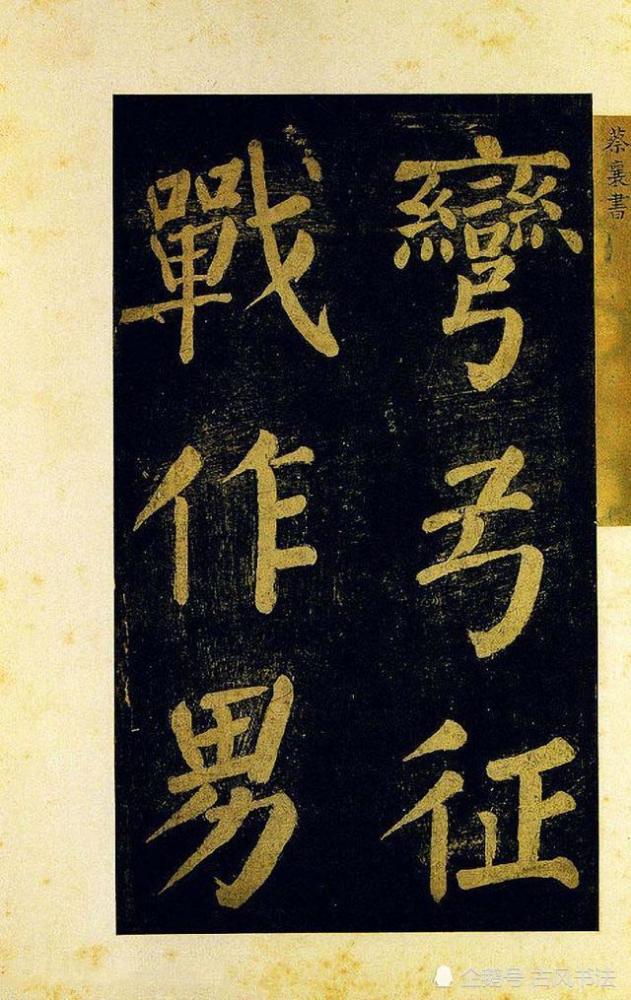 蔡襄書
彎弓征
戰作男
企鹅号 古风书法